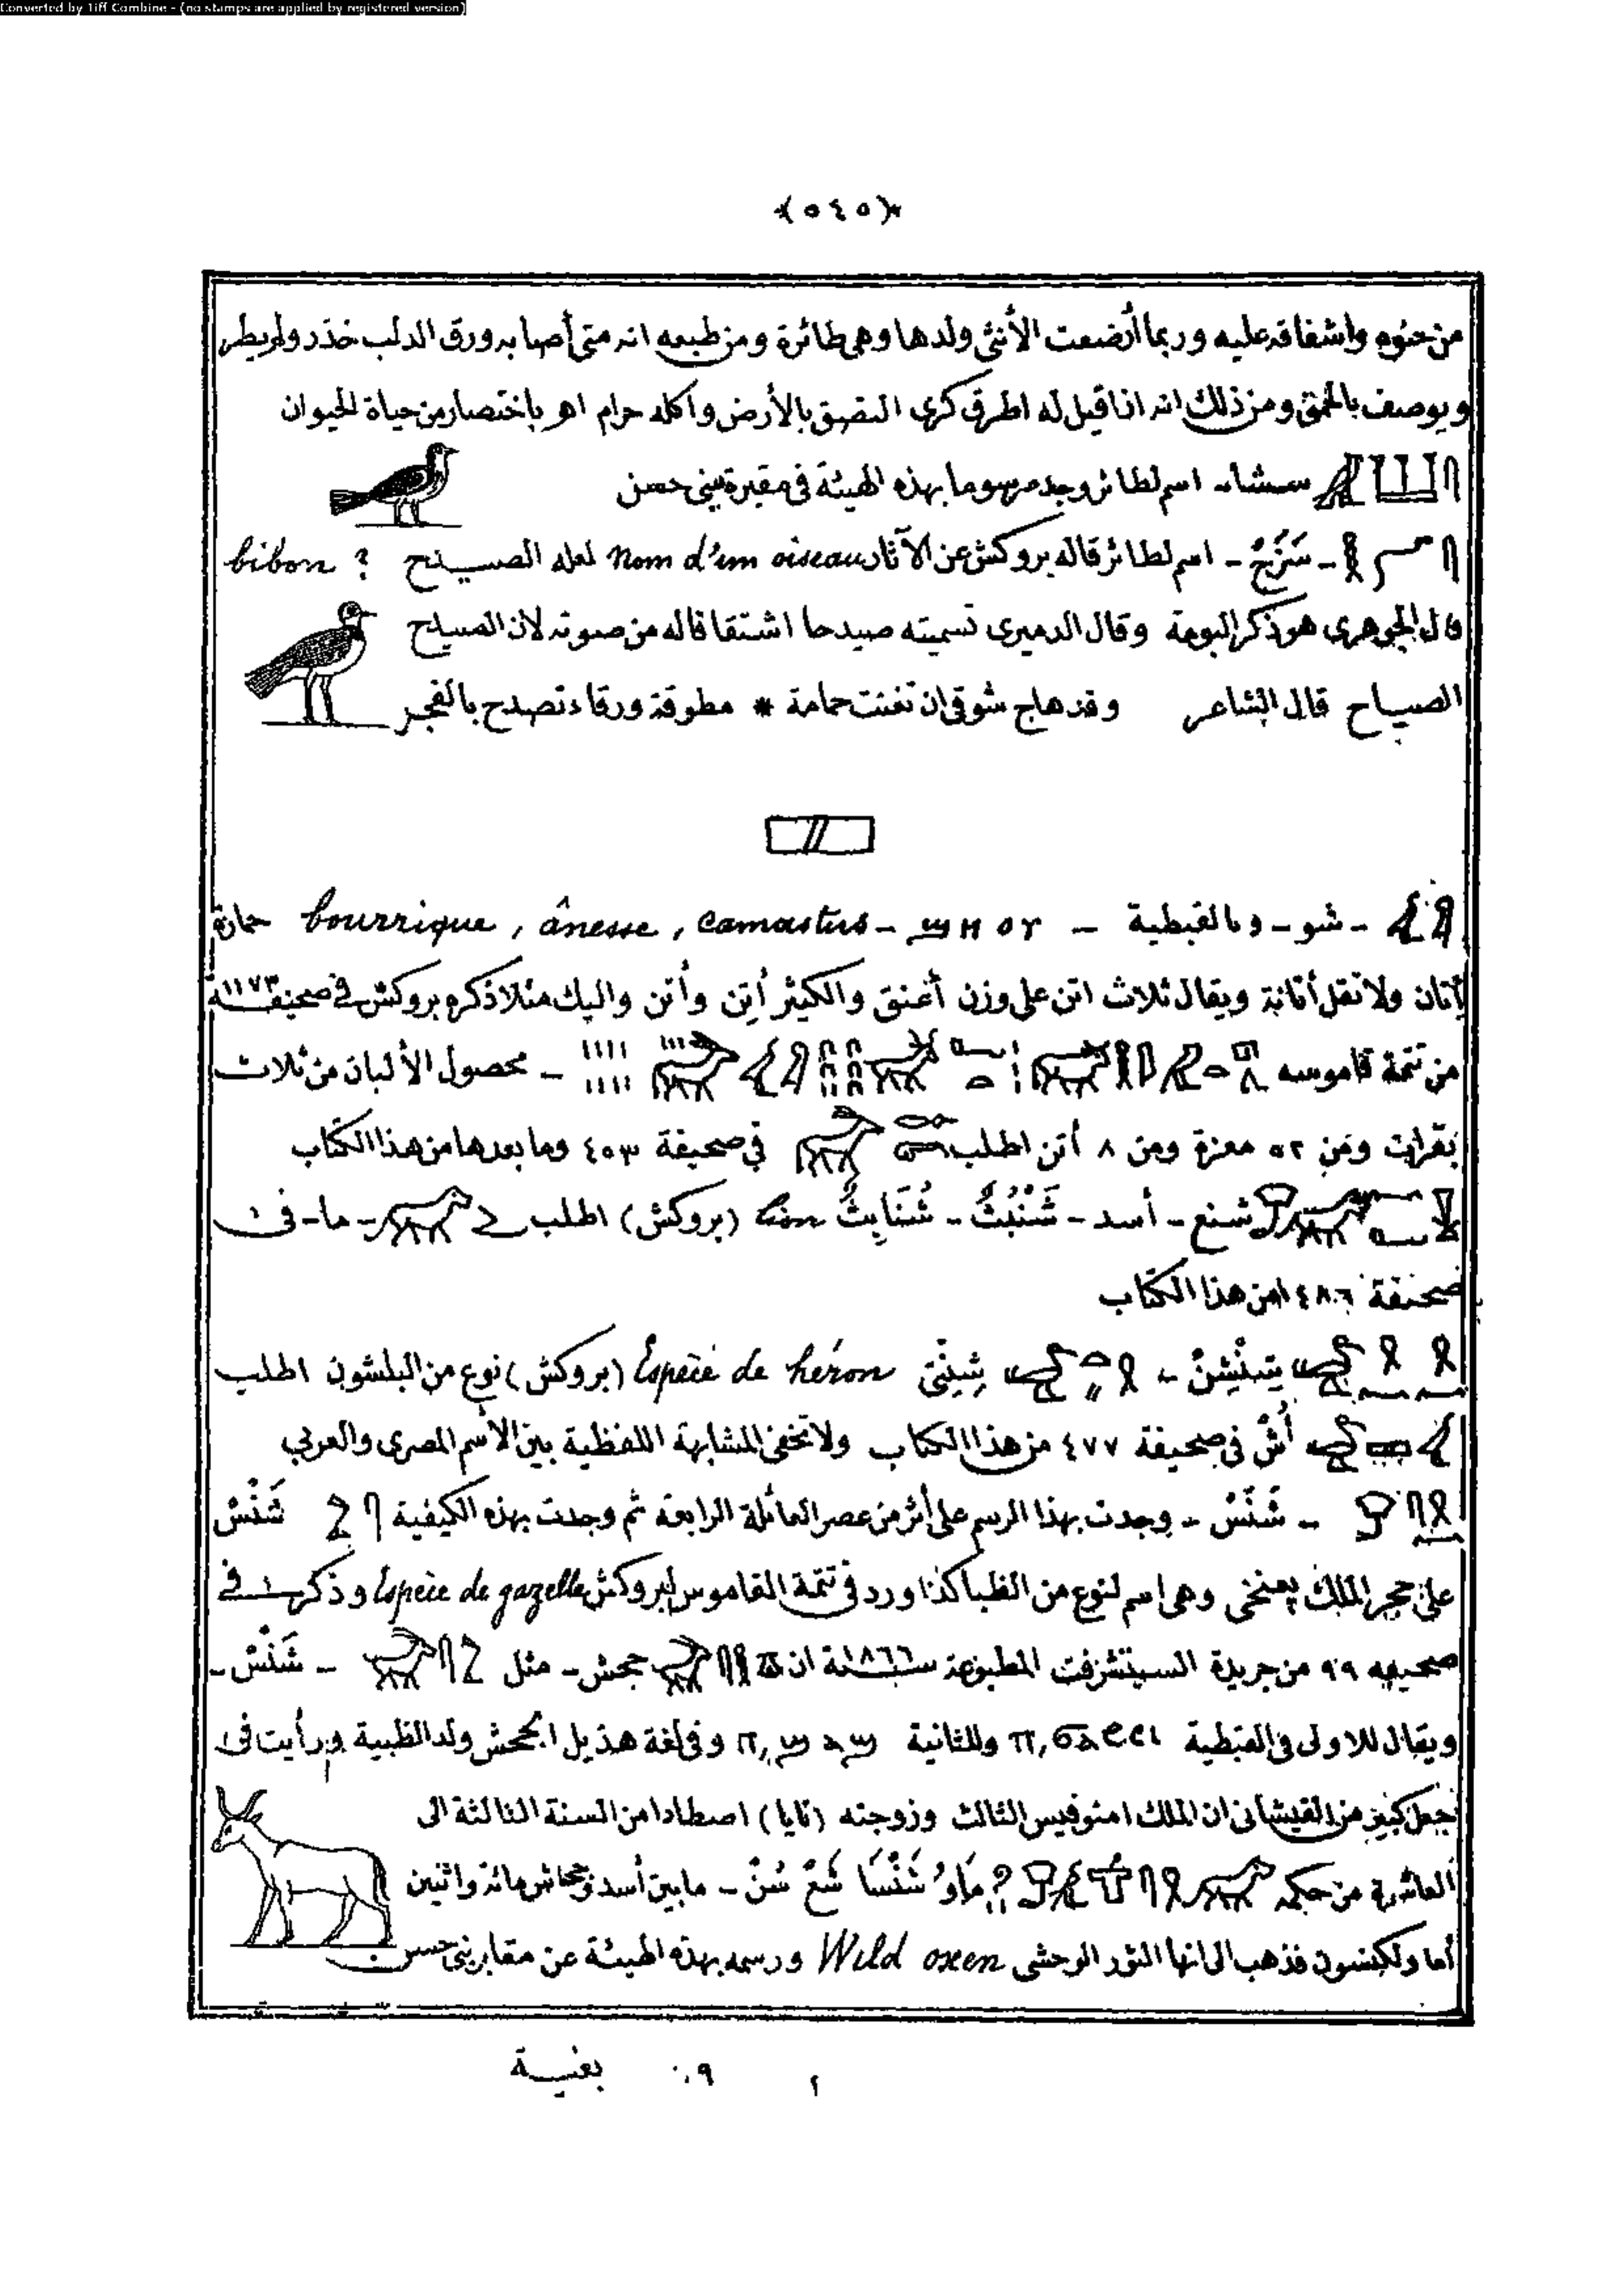 Converted by Tiff Combine - (no stamps are applied by registered version)
﴿٥٤٥﴾
من حنوه واشفاقه عليه وربما أرضعت الأنثى ولدها وهى طائرة ومن طبعه انه متى أصابه ورق الدلب خدر ولم يطر
ويوصف بالحمق ومن ذلك انه اذا قيل له اطرق كرى التصق بالأرض وأكله حرام اهر باختصار من حياة الحيوان
سشاء اسم لطائر وجد مرسوما بهذه الهيئة فى مقبرة بنى حسن
- اسم لطائر قاله بروكش عن الآثار nom d'un oiseau لعله الصيدح ? bibon
قال الجوهرى هو ذكر البومة وقال الدميرى تسميته صيدحا اشتقاقا له من صوته لان الصيدح
الصياح قال الشاعر وقد هاج شوقى ان تغنت حمامة * مطوقة ورقاء تصدح بالفجر
- شو - وبالقبطية - ϣⲏⲟⲩ - bourrique, ânesse, camastus حمارة
أتان ولا تقل أتانة ويقال ثلاث اتن على وزن أعنق والكثير أتن وأتن واليك مثلا ذكره بروكش فى صحيفة ١١٧٣
من تتمة قاموسه - محصول الألبان من ثلاث
بقرات ومن ٥٢ معزة ومن ٨ أتن اطلب فى صحيفة ٤٥٣ وما بعدها من هذا الكتاب
شنع - أسد - شنبث - شنابث lion (بروكش) اطلب - ما - فى
صحيفة ٤٨٦ من هذا الكتاب
Espèce de héron (بروكش) نوع من البلشون اطلب
أش فى صحيفة ٤٧٧ من هذا الكتاب ولا تخفى المشابهة اللفظية بين الأسم المصرى والعربى
- شنس - وجدت بهذا الرسم على أثر من عصر العائلة الرابعة ثم وجدت بهذه الكيفية شنس
على حجر الملك بعنخى وهى اسم لنوع من الظبا كذا ورد فى تتمة القاموس لبروكش Espèce de gazelle وذكر فى
صحيفه ٩٩ من جريدة السيتشرفت المطبوعة سنة ١٨٦٦ ان جحش - مثل - شنس -
ويقال للاولى فى القبطية وللثانية وفى لغة هذيل الجحش ولد الظبية ورأيت فى
جعل كبير من القيشانى ان الملك امنوفيس الثالث وزوجته (تايا) اصطادا من السنة الثالثة الى
العاشرة من حكمه شنسا شع سن - مابين أسد وجحاش مائة واثنين
أما ولكنسون فذهب الى انها الثور الوحشى Wild oxen ورسمه بهذه الهيئة عن مقابر بنى حسن
٢ ٩. بغية